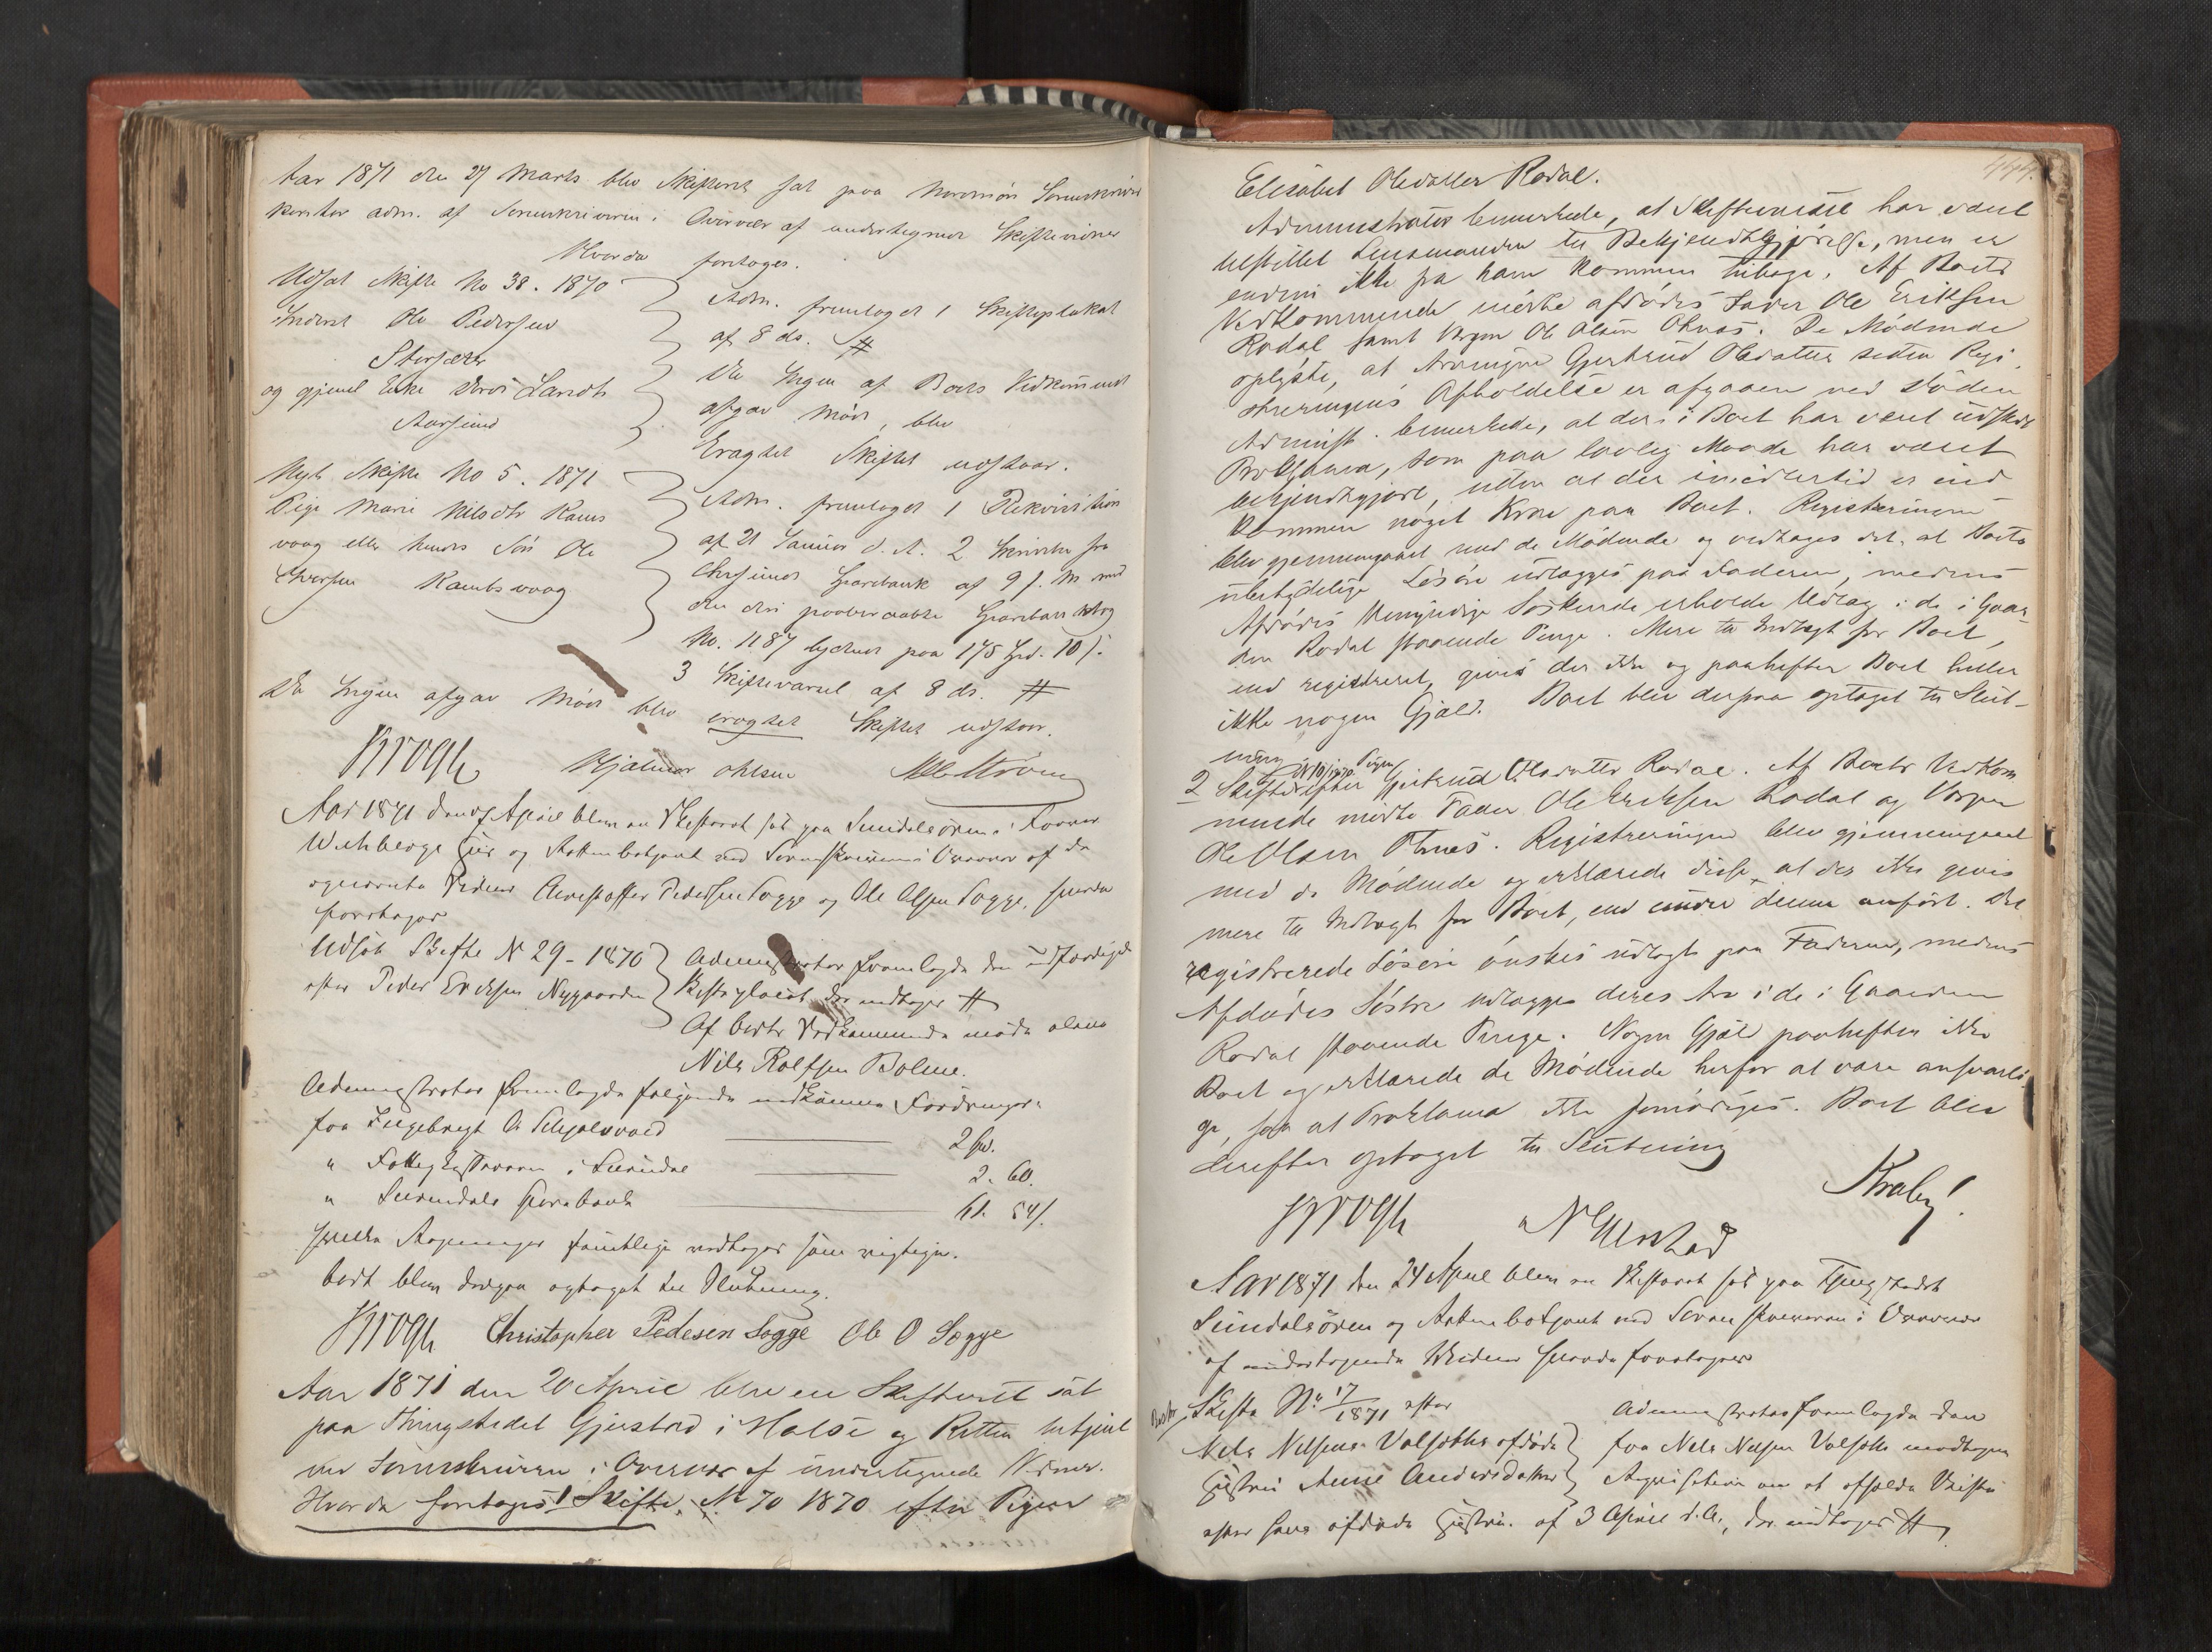 Aar 1871 den 27 Marts blev Skifteret sat paa Nordmør Sorenskriver
kontor adm. af Sorenskriveren i Overvær af undertegnede Skiftevidner
Hvorda foretoges.
Udsat Skifte No 38. 1870
Ole Pedersen
og gjenl Enke
Adm. fremlagde 1 Skifteplakat
af 8 ds. #
Da Ingen af Boets Vedkommende
afgav Møde, blev
Eragtet Skiftet udstaar.
Nyt Skifte No 5. 1871
Pige Marie Nilsdtr Rams
voag eller hendes Søn Ole
Iversen Rambsvoag
Adm. fremlagde 1 Rekvisition
af 21 Januar d. A. 2 Skrivelse fra
Sparebank af 9 f. M med
den deri paaberaabte Sparebankbog
No. 1187 lydende paa 175 Spd. 10 s.
3 Skiftevarsel af 8 ds. #
Da Ingen afgav Møde blev eragtet Skiftet udstaar.
Krogh Hjalmar Ohlsen
Aar 1871 den April blev en Skifteret sat paa Sundalsøren i
og Retten betjent ved Sorenskriveren i Overvær af de
Vidner Christoffer Pedersen Sogge og Ole Olsen Sogge, hvorda
foretoges
Udsat Skifte N 29 - 1870
efter Peder Ericksen Nygaarden
Administrator fremlagde den
Skifteplacat der indtages #
Af Boets Vedkommende mødte alene
Nils Rolfsen Bolme.
Administrator fremlagde følgende indkomne Fordringer:
fra Ingebregt O
2 Spd.
" i Surendal
2. 60.
" Surendals Sparebank
61. 54 s.
hvilke Regninger samtlige vedtoges som rigtige.
Boet blev derpaa optaget til Slutning.
Krogh Christopher Pedesen Sogge Ole O Sogge
Aar 1871 den 20 April blev en Skifteret sat
paa Thingstedet Gjerstad i Halse og Retten betjent
ved Sorenskriveren i Overvær af undertegnede Vidner.
Hvorda foretoges 1 Skifte No 70 1870 efter Pigen
444.
Elisabet Olsdatter Rodal.
Administrator bemærkede, at Skiftevarsel har været
tilstillet Lensmanden til Bekjendtgjørelse, men er
endnu ikke fra ham kommen tilbage. Af Boets
Vedkommende mødte afdødes Fader Ole Eriksen
Rodal samt Vergen Ole Olsen Otnes. De Mødende
oplyste, at Arvingen Gjertrud Olsdatter siden Regi-
streringens Afholdelse er afgaaen ved Døden
Administ. bemærkede, at der i Boet har været udstedt
Proklama, som paa lovlig Maade har været
bekjendtgjort, uden at der imidlertid er ind
kommen noget Krav paa Boet. Registreringen
blev gjennemgaaet med de Mødende og vedtoges det, at Boets
ubetydelige Løsøre udlægges paa Faderen, medens
Afdødes Umyndige Søskende erholde Udlæg i de i Gaar-
den Rodal staaende Penge. Mere til Indtægt for Boet,
end registreret, gives der ikke og paahefter Boet heller
ikke nogen Gjæld. Boet blev derpaa optaget til Slut-
ning
2 Skifte efter Pigen Gjertrud Olsdatter Rodal. Af Boets Vedkom
mende mødte Fader Ole Eriksen Rodal og Vergen
Ole Olsen Otnes. Registreringen blev gjennemgaaet
med de Mødende og erklærede disse, at der ikke gives
mere til Indtægt for Boet, end under denne anført. Det
registrerede Løsøre ønskes udlagt paa Faderen, medens
Afdødes Søstre udlægges deres Arv i de i Gaarden
Rodal staaende Penge. Nogen Gjæld paahefter ikke
Boet og erklærede de Mødende herfor at være ansvarli-
ge, saa at Proklama ikke fornødiges. Boet blev
derefter optaget til Slutning
Krogh
Aar 1871 den 24 April blev en Skifteret sat paa Thingstedet
Sundalsøren og Retten betjent ved Sorenskriveren i Overvær
af undertegnede Vidner hvorda foretoges
Skifte No 17/1871 efter
Nils Nilsens afdøde
Hustru Anne Andersdatter
Administrator fremlagde den
fra Nils Nilsen modtagne
Reqvisition om at afholde Skifte
efter hans afdøde Hustru. af 3 April d. A., der indtages #